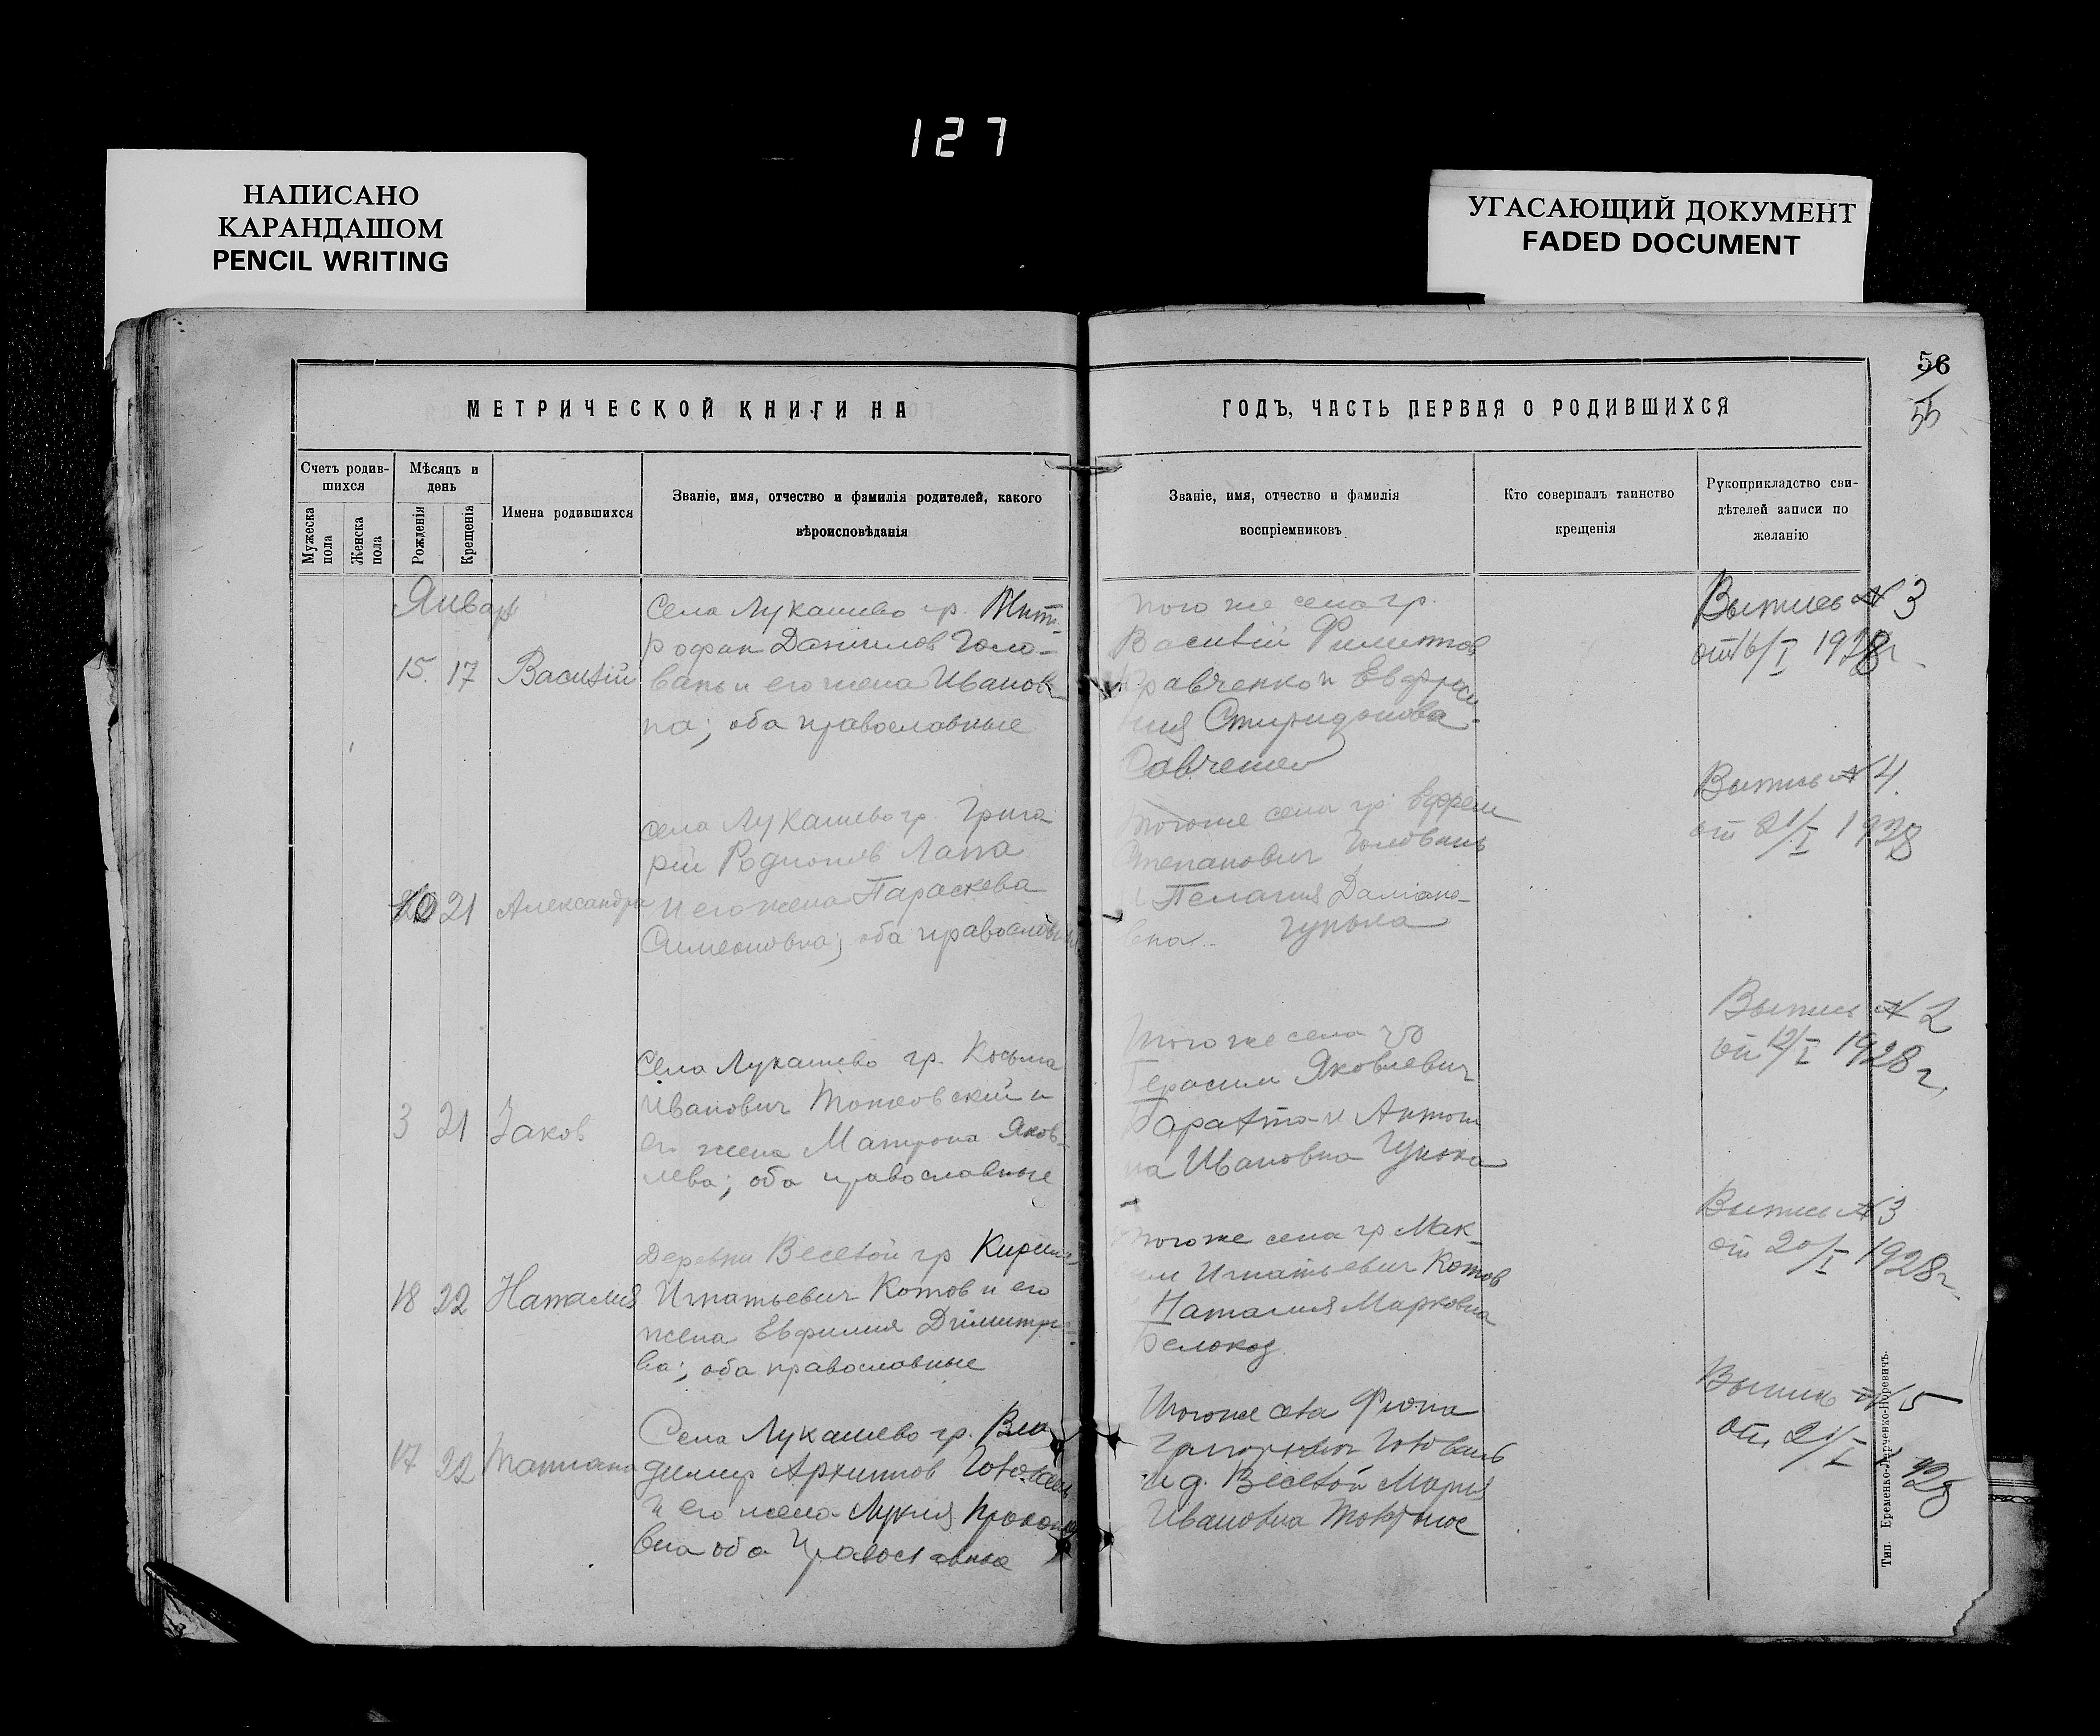 127
НАПИСАНО
КАРАНДАШОМ
PENCIL WRITING
УГАСАЮЩИЙ ДОКУМЕНТ
FADED DOCUMENT
56
55
МЕТРИЧЕСКОЙ КНИГИ НА
ГОДЪ, ЧАСТЬ ПЕРВАЯ О РОДИВШИХСЯ
Счетъ родив-
шихся
Мужеска
пола
Женска
пола
Мѣсяцъ и
день
Рожденія
Крещенія
Имена родившихся
Званіе, имя, отчество и фамилія родителей, какого
вѣроисповѣданія
Званіе, имя, отчество и фамилія
воспріемниковъ
Кто совершалъ таинство
крещенія
Рукоприкладство сви-
дѣтелей записи по
желанію
Январь
15. 17 Василій
Села Лукашево гр. Мит-
рофан Даниилов Голо-
вань и его жена Иванов-
на; оба православные
того же села гр.
Василій Филиппов
Кравченко и Евфроси
ния Спиридонова
Савченко
Выпись № 3
от 16/I 1928 г.
20 21 Александра
Села Лукашево гр. Григо
рій Родионов Лапа
и его жена Параскева
Симеоновна; оба православные
Того же села гр. Ефрем
Степанович Головань
и Пелагия Дамиано-
вна Гунька
Выпись № 4.
от 21/I 1928
3 21 Іаков
Села Лукашево гр. Косьма
Иванович Тонковский и
его жена Матрона Яков-
лева; оба православные
Того же села гр
Герасим Яковлевич
и Антони
на Ивановна Гунька
Выпись № 2
от 12/I 1928 г.
18 22 Наталия
Деревни Веселой гр Кирилл
Игнатьевич Котов и его
жена Евфимия Димитрие-
ва; оба православные
того же села гр Мак-
сим Игнатьевич Котов
Наталия Марковна
Белокоз
Выпись № 3
от 20/I 1928 г.
17 22 Татиана
Села Лукашево гр. Вла
димир Архиппов Головань
и его жена Лукия Прокопие
вна оба православные
Того же села
Григорьевич Головань
и д. Веселой Мария
Ивановна
Выпись № 5
от 21/I 28
Тип. Еременко-Лерченко-Норевичъ.